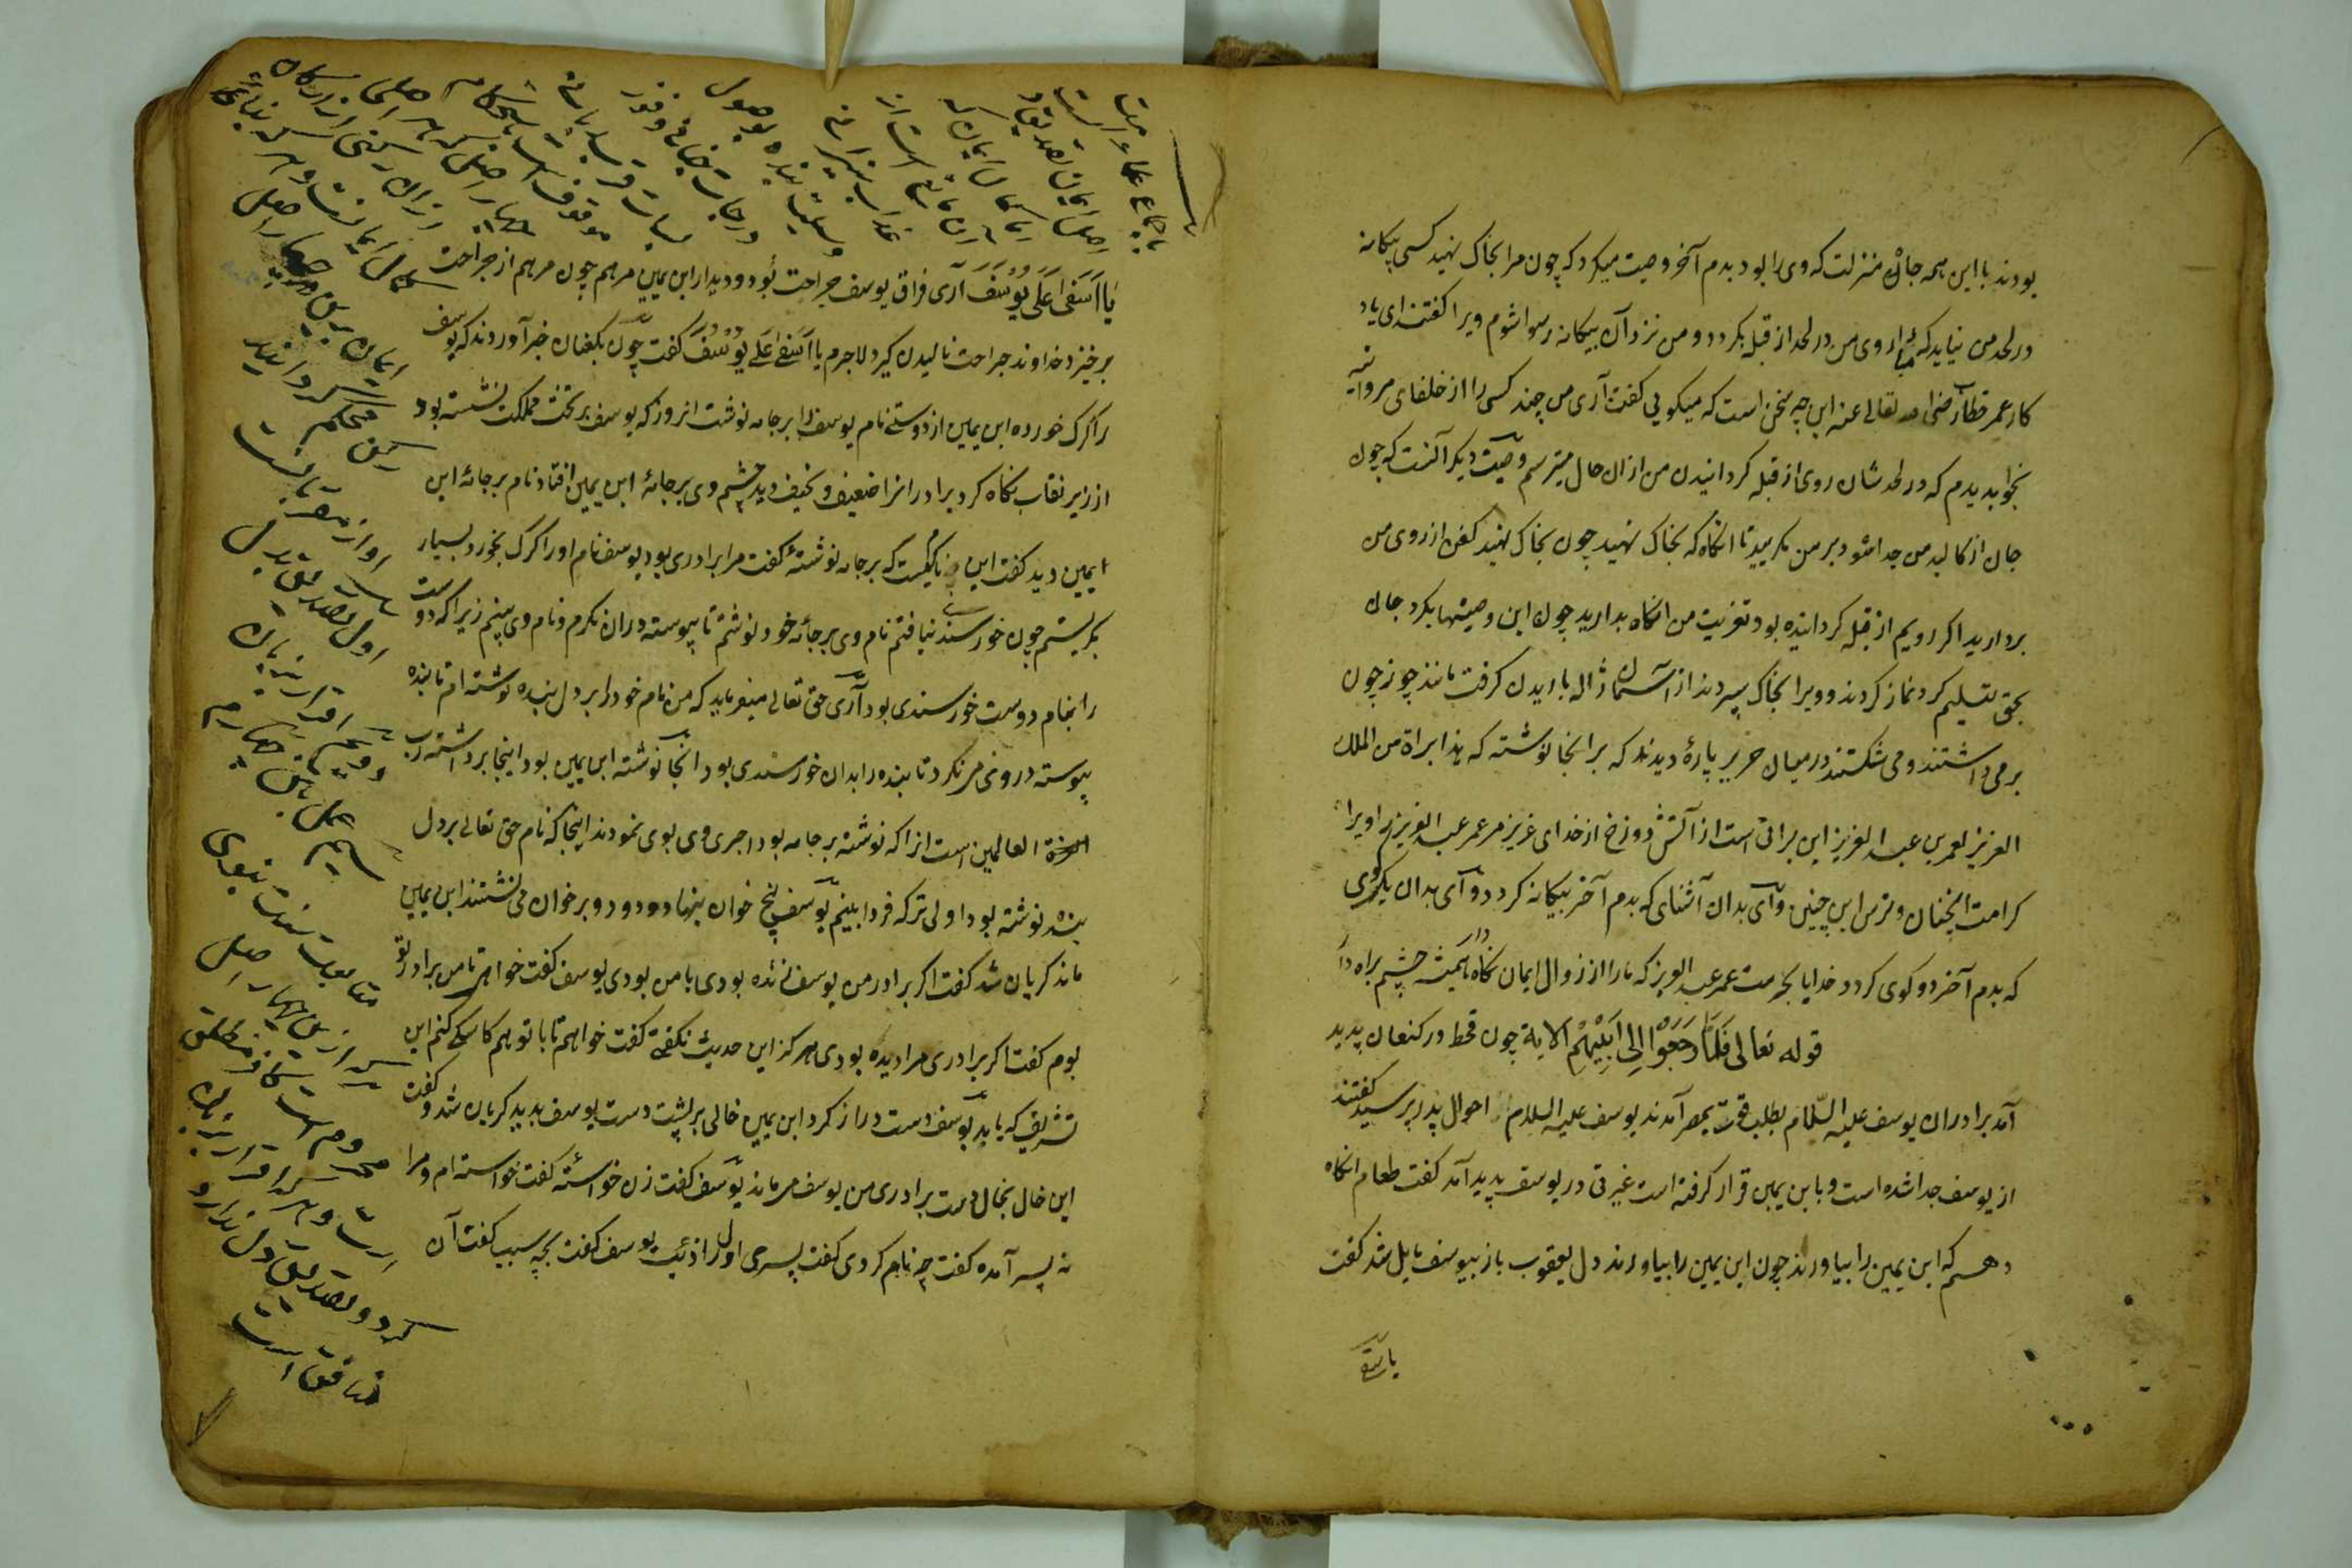 بودند با این همه جاه و منزلت که وی را بود بدم آخر وصیت میکرد که چون مرا بخاک نهید کسی بیکانه
در لحد من نیاید که مبادا روی من در لحد از قبله بکردد و من نزد آن بیکانه رسوا شوم ویرا کفتند ای یاد
کار عمر خطاب رضی الله تعالی عنه این چه سخن است که میکویی کفت آری من چند کس را از خلفای مروانیه
بخواب دیدم که در لحد شان روی از قبله کردانیدن من ازان حال میترسم وصیت دیکر آنست که چون
جان از کالبد من جدا شود بر من مکریید تا انکاه که بخاک نهید چون بخاک نهید کفن از روی من
بردارید اکر رویم از قبله کردانیده بود تعزیت من انکاه بدارید چون این وصیتها بکرد جان
بحق تسلیم کرد نماز کردند و ویرا بخاک سپردند از آسمان ژاله باریدن کرفت مانند جوز چون
برمی داشتند و می شکستند در میان حریر پارهٔ دیدند که برانجا نوشته که هذا براة من الملک
العزیز لعمر بن عبد العزیز این براتی است از آتش دوزخ از خدای عزیز مر عمر عبد العزیز را ویرا
کرامت اینچنان و ترس این چنین وای بدان آشنای که بدم آخر بیکانه کردد و آی بدان یکروی
که بدم آخر دو کوی کردد خدایا بحرمت عمر عبد العزیز که ما را از زوال ایمان نکاه دار همیشه چشم براه دا
قوله تعالی فَلَمَّا رَجَعُوا اِلٰی اَبِیْهِمْ الایة چون قحط در کنعان پدید
آمد برادران یوسف علیه السّلام بطلب قوت بمصر آمدند یوسف علیه السلام احوال پدر پرسید کفتند
از یوسف جدا شده است و با بن یمین قرار کرفته است غیرتی در یوسف پدید آمد کفت طعام انکاه
دهم که ابن یمین را بیاورند چون ابن یمین را بیاورند دل یعقوب باز بیوسف مایل شد کفت
یا اسفی
یَا اَسَفَی عَلَی یُوْسُفَ آری فراق یوسف جراحت بود و دیدار ابن یمین مرهم چون مرهم از جراحت
برخیزد خداوند جراحت نالیدن کیرد لاجرم یَا اَسَفَی عَلَی یُوْسُفَ کفت چون بکنعان خبر آوردند که یوسف
را کرک خورده ابن یمین از دوستی نام یوسف را بر جامه نوشت انروز که یوسف بر تخت مملکت نشسته بود
از زیر نقاب نکاه کرد برادرانرا ضعیف و نحیف دید چشم وی بر جامهٔ ابن یمین افتاد نام بر جامهٔ ابن
یمین دید کفت این نام کیست که بر جامه نوشتهٔ کفت مرا برادری بود یوسف نام او را کرک بخورد بسیار
بکریستم چون خورسندی نیافتم نام وی بر جامه خود نوشتم تا پیوسته دران نکرم و نام وی بینم زیرا که دوست
را بنام دوست خورسندی بود آری حق تعالی میفرماید که من نام خود را بر دل بنده نوشته ام تا بنده
پیوسته درو می نکرد تا بنده را بدان خورسندی بود انجا نوشته ابن یمین بود اینجا برداشته رب
العزة العالمین است انرا که نوشته بر جامه بود اجری وی بوی نمودند اینجا که نام حق تعالی بر دل
بنده نوشته بود اولی تر که فردا بینم یوسف پنج خوان بنهاد و دو دو بر خوان می نشستند ابن یمین
ماند کریان شد کفت اکر برادر من یوسف زنده بودی با من بودی یوسف کفت خواهی تا من برادر تو
بوم کفت اکر برادری مرا دیده بودی هرکز این حدیث نکفتی کفت خواهم تا با تو هم کاسکی کنم این
تشریف که یابد یوسف دست دراز کرد ابن یمین خالی بر پشت دست یوسف بدید کریان شد و کفت
این خال بخال دست برادری من یوسف می ماند یوسف کفت زن خواستهٔ کفت خواسته ام و مرا
نه پسر آمده کفت چه نام کردی کفت پسری اول را ذئب یوسف کفت بچه سبب کفت آن
باجماع علماء
اصل ایمان تصدیق
کمال ایمان که
عذاب نیران
وسیلت بنده بوصول
درجات جنان و فوز
موقوفست باستحکام
چهار اصل که هر اصلی
ازان رکنی از ارکان
کمال ایمانست و هر که بنای
ایمان برین چهار اصل
محکم کردانید
اول تصدیق بدل
دویم اقرار بزبان
سیم عمل بتن چهارم
متابعت سنت نبوی
هرکه ازین چهار اصل
محروم است کافر مطلق
است و هرکه اقرار بزبان
کرد و تصدیق بدل ندارد
منافق است